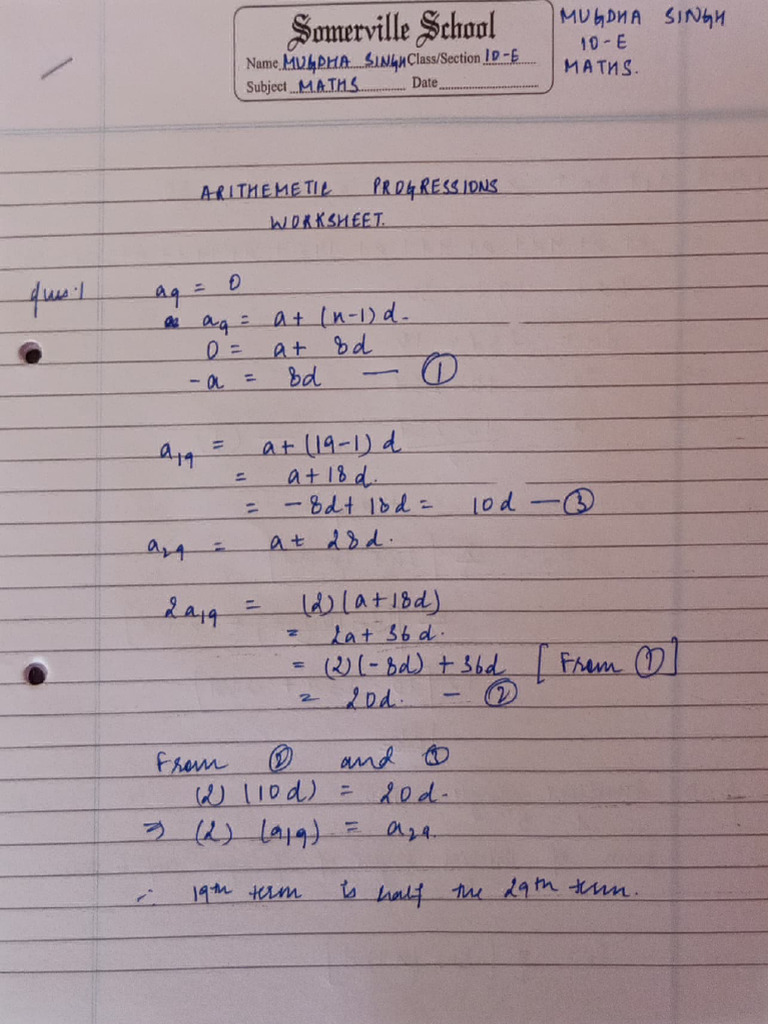 Somerville School
Name MUGDHA SINGH Class/Section 10-E
Subject MATHS Date
MUGDHA SINGH
10-E
MATHS.
ARITHEMETIC PROGRESSIONS
WORKSHEET.
Ques:1
a₉ = 0
a₉ = a + (n-1) d.
0 = a + 8d
-a = 8d — ①
a₁₉ = a + (19-1) d
= a + 18d.
= -8d + 18d = 10d — ③
a₂₉ = a + 28d.
2a₁₉ = (2) (a + 18d)
= 2a + 36d.
= (2) (-8d) + 36d [From ①]
= 20d. — ②
From ② and ③
(2) (10d) = 20d.
⇒ (2) (a₁₉) = a₂₉.
∴ 19th term is half the 29th term.